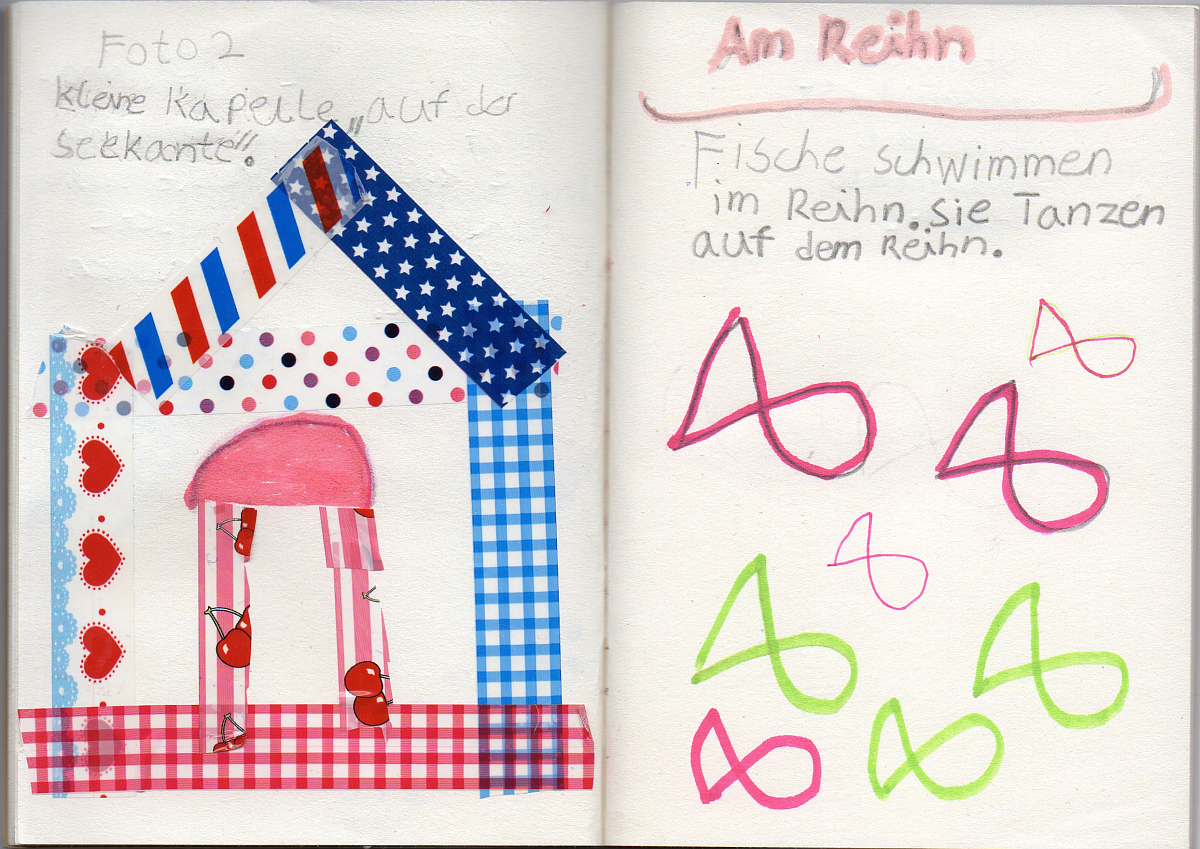 Foto 2
kleine Kapelle „auf der
Seekante".
Am Reihn
Fische schwimmen
im Reihn. Sie Tanzen
auf dem Reihn.